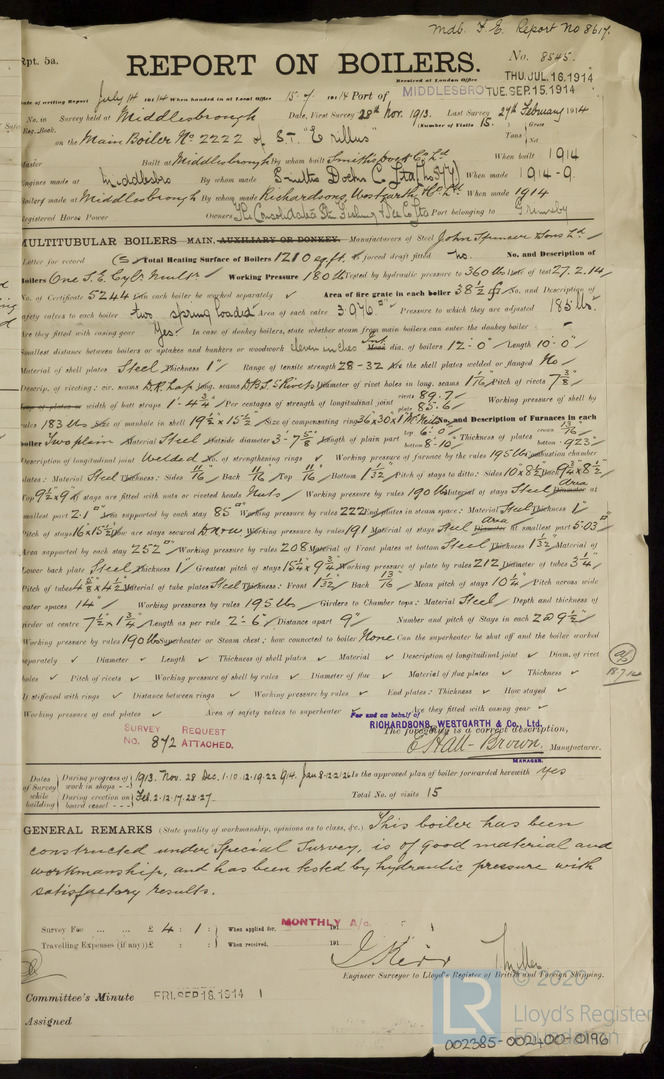 Mdb. F. E. Report No 8617.
Rpt. 5a.
REPORT ON BOILERS.
No. 8545.
Received at London Office THU. JUL. 16. 1914
TUE. SEP. 15. 1914
Date of writing Report July 14 1914 When handed in at Local Office 15. 7. 1914 Port of MIDDLESBRO
No. in Survey held at Middlesbrough Date, First Survey 28th Nov. 1913. Last Survey 27th February 1914
Reg. Book. (Number of Visits 15.
on the Main Boiler No 2222 of S.T. "Erillus" Tons Gross Net
Master Built at Middlesbrough By whom built Smiths Dock Co. Ltd When built 1914
Engines made at Middlesbro By whom made Smiths Dock Co Ltd (No 577) When made 1914 - 9.
Boilers made at Middlesbrough By whom made Richardsons, Westgarth & Co. Ltd. When made 1914
Registered Horse Power Owners The Consolidated Ste. Fishing & Ice Co Ltd Port belonging to Grimsby
MULTITUBULAR BOILERS MAIN, AUXILIARY OR DONKEY. Manufacturers of Steel John Spencer & Sons Ld.
Letter for record (S) Total Heating Surface of Boilers 1210 sq. ft. Is forced draft fitted no. No. and Description of
Boilers One S.E. Cyl. Mult. Working Pressure 180 lbs Tested by hydraulic pressure to 360 lbs Date of test 27.2.14
No. of Certificate 5244 Can each boiler be worked separately ✓ Area of fire grate in each boiler 38½ sq ft No. and Description of
safety valves to each boiler two spring loaded Area of each valve 3.976 □" Pressure to which they are adjusted 185 lbs
Are they fitted with easing gear Yes. In case of donkey boilers, state whether steam from main boilers can enter the donkey boiler ✓
Smallest distance between boilers or uptakes and bunkers or woodwork eleven inches Int. Mean dia. of boilers 12'-0" Length 10'-0"
Material of shell plates Steel Thickness 1" Range of tensile strength 28-32 Are the shell plates welded or flanged No
Descrip. of riveting: cir. seams D.R. Lap long. seams D.B.S. 5 Rivets Diameter of rivet holes in long. seams 1 1/16 Pitch of rivets 7 3/8
Lap of plates or width of butt straps 1'-4¾" Per centages of strength of longitudinal joint rivets 89.7 plate 85.6 Working pressure of shell by
rules 183 lbs Size of manhole in shell 19½ x 15½ Size of compensating ring 36 x 30 x 1 No. and Description of Furnaces in each
boiler Two plain Material Steel Outside diameter 3'-7 5/8 Length of plain part top 6'-0" bottom 8'-10" Thickness of plates crown 13/16 bottom .923
Description of longitudinal joint Welded No. of strengthening rings ✓ Working pressure of furnace by the rules 195 lbs Combustion chamber
plates: Material Steel Thickness: Sides 11/16 Back 11/16 Top 11/16 Bottom 1 1/32 Pitch of stays to ditto: Sides 10 x 8½ Back 9¾ x 8½
Top 9½ x 9 If stays are fitted with nuts or riveted heads Nuts Working pressure by rules 190 lbs Material of stays Steel Area Diameter at
smallest part 2.1 □" Area supported by each stay 85 □" Working pressure by rules 222 End plates in steam space: Material Steel Thickness 1"
Pitch of stays 16 x 15½ How are stays secured D.N.&W Working pressure by rules 191 Material of stays Steel Area Diameter at smallest part 5.03
Area supported by each stay 252 □" Working pressure by rules 208 Material of Front plates at bottom Steel Thickness 1 1/32 Material of
Lower back plate Steel Thickness 1" Greatest pitch of stays 15¼ x 9¾ Working pressure of plate by rules 212 Diameter of tubes 3¼
Pitch of tubes 4 5/8 x 4½ Material of tube plates Steel Thickness: Front 1 1/32 Back 13/16 Mean pitch of stays 10¼ Pitch across wide
water spaces 14" Working pressures by rules 195 lbs Girders to Chamber tops: Material Steel Depth and thickness of
girder at centre 7½ x 1¾ Length as per rule 2'-6" Distance apart 9" Number and pitch of Stays in each 2 @ 9½
Working pressure by rules 190 lbs Superheater or Steam chest; how connected to boiler None Can the superheater be shut off and the boiler worked
separately ✓ Diameter ✓ Length ✓ Thickness of shell plates ✓ Material ✓ Description of longitudinal joint ✓ Diam. of rivet
holes ✓ Pitch of rivets ✓ Working pressure of shell by rules ✓ Diameter of flue ✓ Material of flue plates ✓ Thickness ✓
If stiffened with rings ✓ Distance between rings ✓ Working pressure by rules ✓ End plates: Thickness ✓ How stayed ✓
Working pressure of end plates ✓ Area of safety valves to superheater ✓ Are they fitted with easing gear ✓
18.7.14
SURVEY REQUEST
No. 872 ATTACHED.
For and on behalf of
RICHARDSONS, WESTGARTH & Co., Ltd.
The foregoing is a correct description,
C. Hall-Brown. Manufacturer.
MANAGER.
Dates of Survey while building
During progress of work in shops - - 1913. Nov. 28 Dec. 1. 10. 12. 19. 22 1914. Jan 8. 22. 26 Is the approved plan of boiler forwarded herewith yes
During erection on board vessel - - - Feb. 2. 12. 17. 23. 27. Total No. of visits 15
GENERAL REMARKS (State quality of workmanship, opinions as to class, &c.) This boiler has been
constructed under Special Survey, is of good material and
workmanship, and has been tested by hydraulic pressure with
satisfactory results.
Survey Fee ... ... £ 4 : 1 : When applied for, MONTHLY A/c. 191
Travelling Expenses (if any) £ : : When received, 191
J Keir
Engineer Surveyor to Lloyd's Register of British and Foreign Shipping.
Committee's Minute FRI. SEP. 18. 1914
Assigned
© 2020
LR Lloyd's Register
Foundation
002385-002400-0196